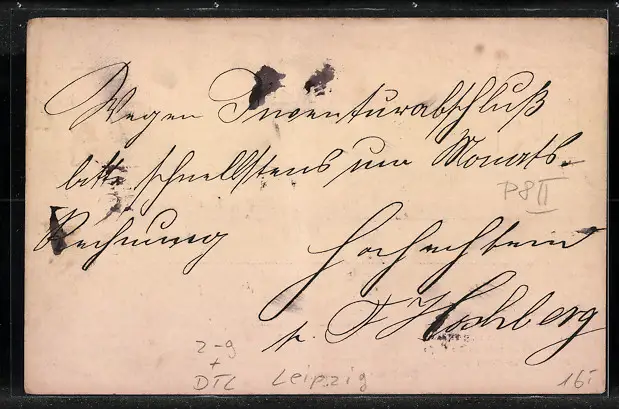 Wegen Inventurabschluß
bitte schnellstens um Monats-
P8II
Rechnung
Hochachtend
p. F Hochberg
2-g
+
DTC Leipzig 16,-